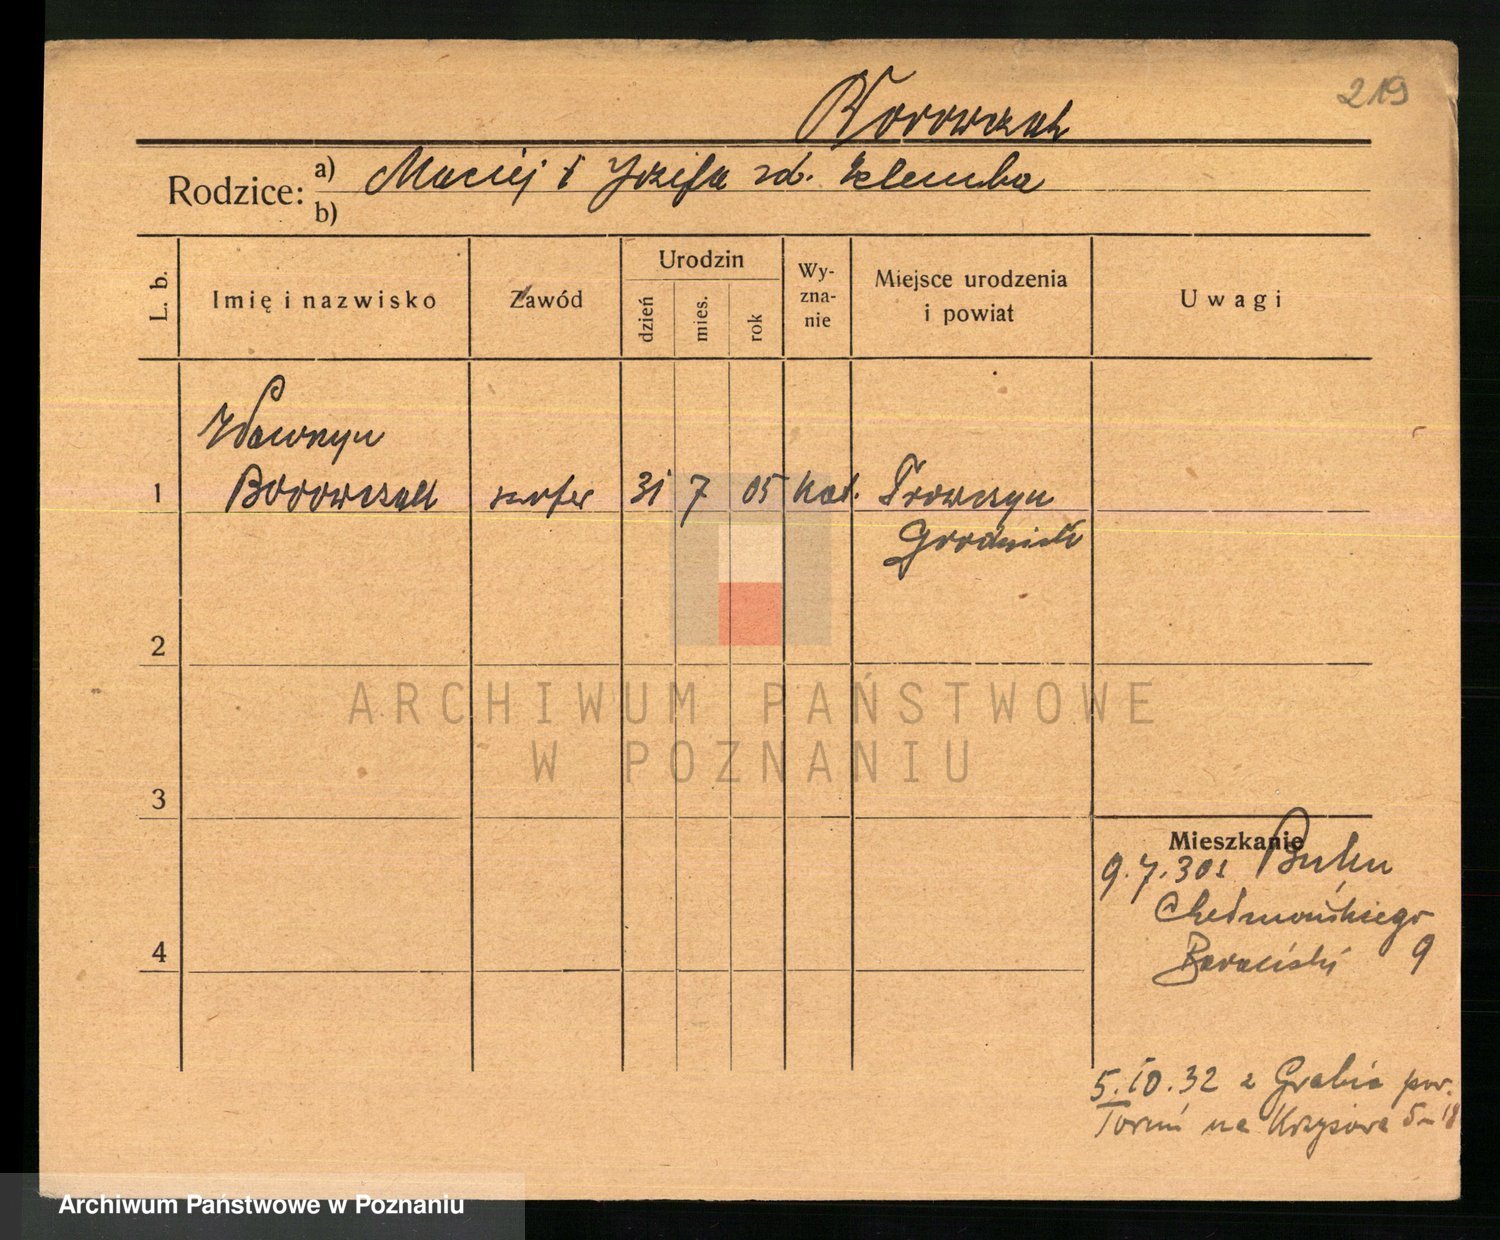 219
Borowczak
Rodzice: a) Maciej i Józefa zd. Klemba
b)
L. b. Imię i nazwisko Zawód Urodzin dzień mies. rok Wy-zna-nie Miejsce urodzenia i powiat Uwagi
Wawrzyn
1 Borowczak szofer 31 7 05 kat. Trowczyn
Grodzisk
2
ARCHIWUM PAŃSTWOWE
W POZNANIU
3
Mieszkanie
9.7.30 z Buku
Chełmońskiego
4
9
5.10.32 z Grabia pow.
Toruń na Krzysowa 5 18
Archiwum Państwowe w Poznaniu